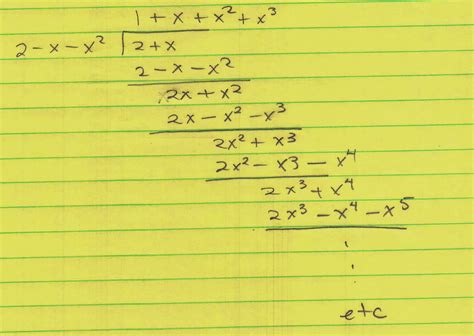 1 + x + x² + x³
2 - x - x² | 2 + x
2 - x - x²
2x + x²
2x - x² - x³
2x² + x3
2x² - x3 - x⁴
2x³ + x⁴
2x³ - x⁴ - x⁵
etc